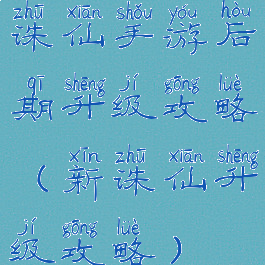 zhū xiān shǒu yóu hòu
诛仙手游后
qī shēng jí gōng lüè
期升级攻略
xīn zhū xiān shēng
（新诛仙升
jí gōng lüè
级攻略）